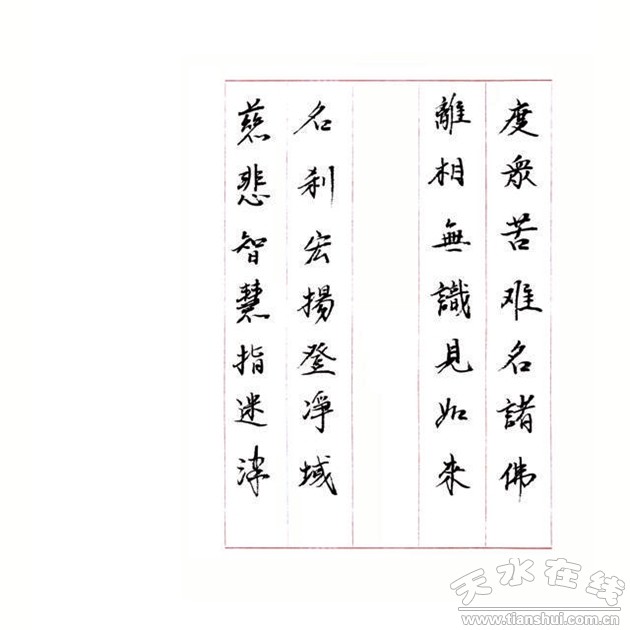 度衆苦难名諸佛
離相無識見如來
名刹宏揚登凈域
慈悲智慧指迷津
天水在线
www.tianshui.com.cn